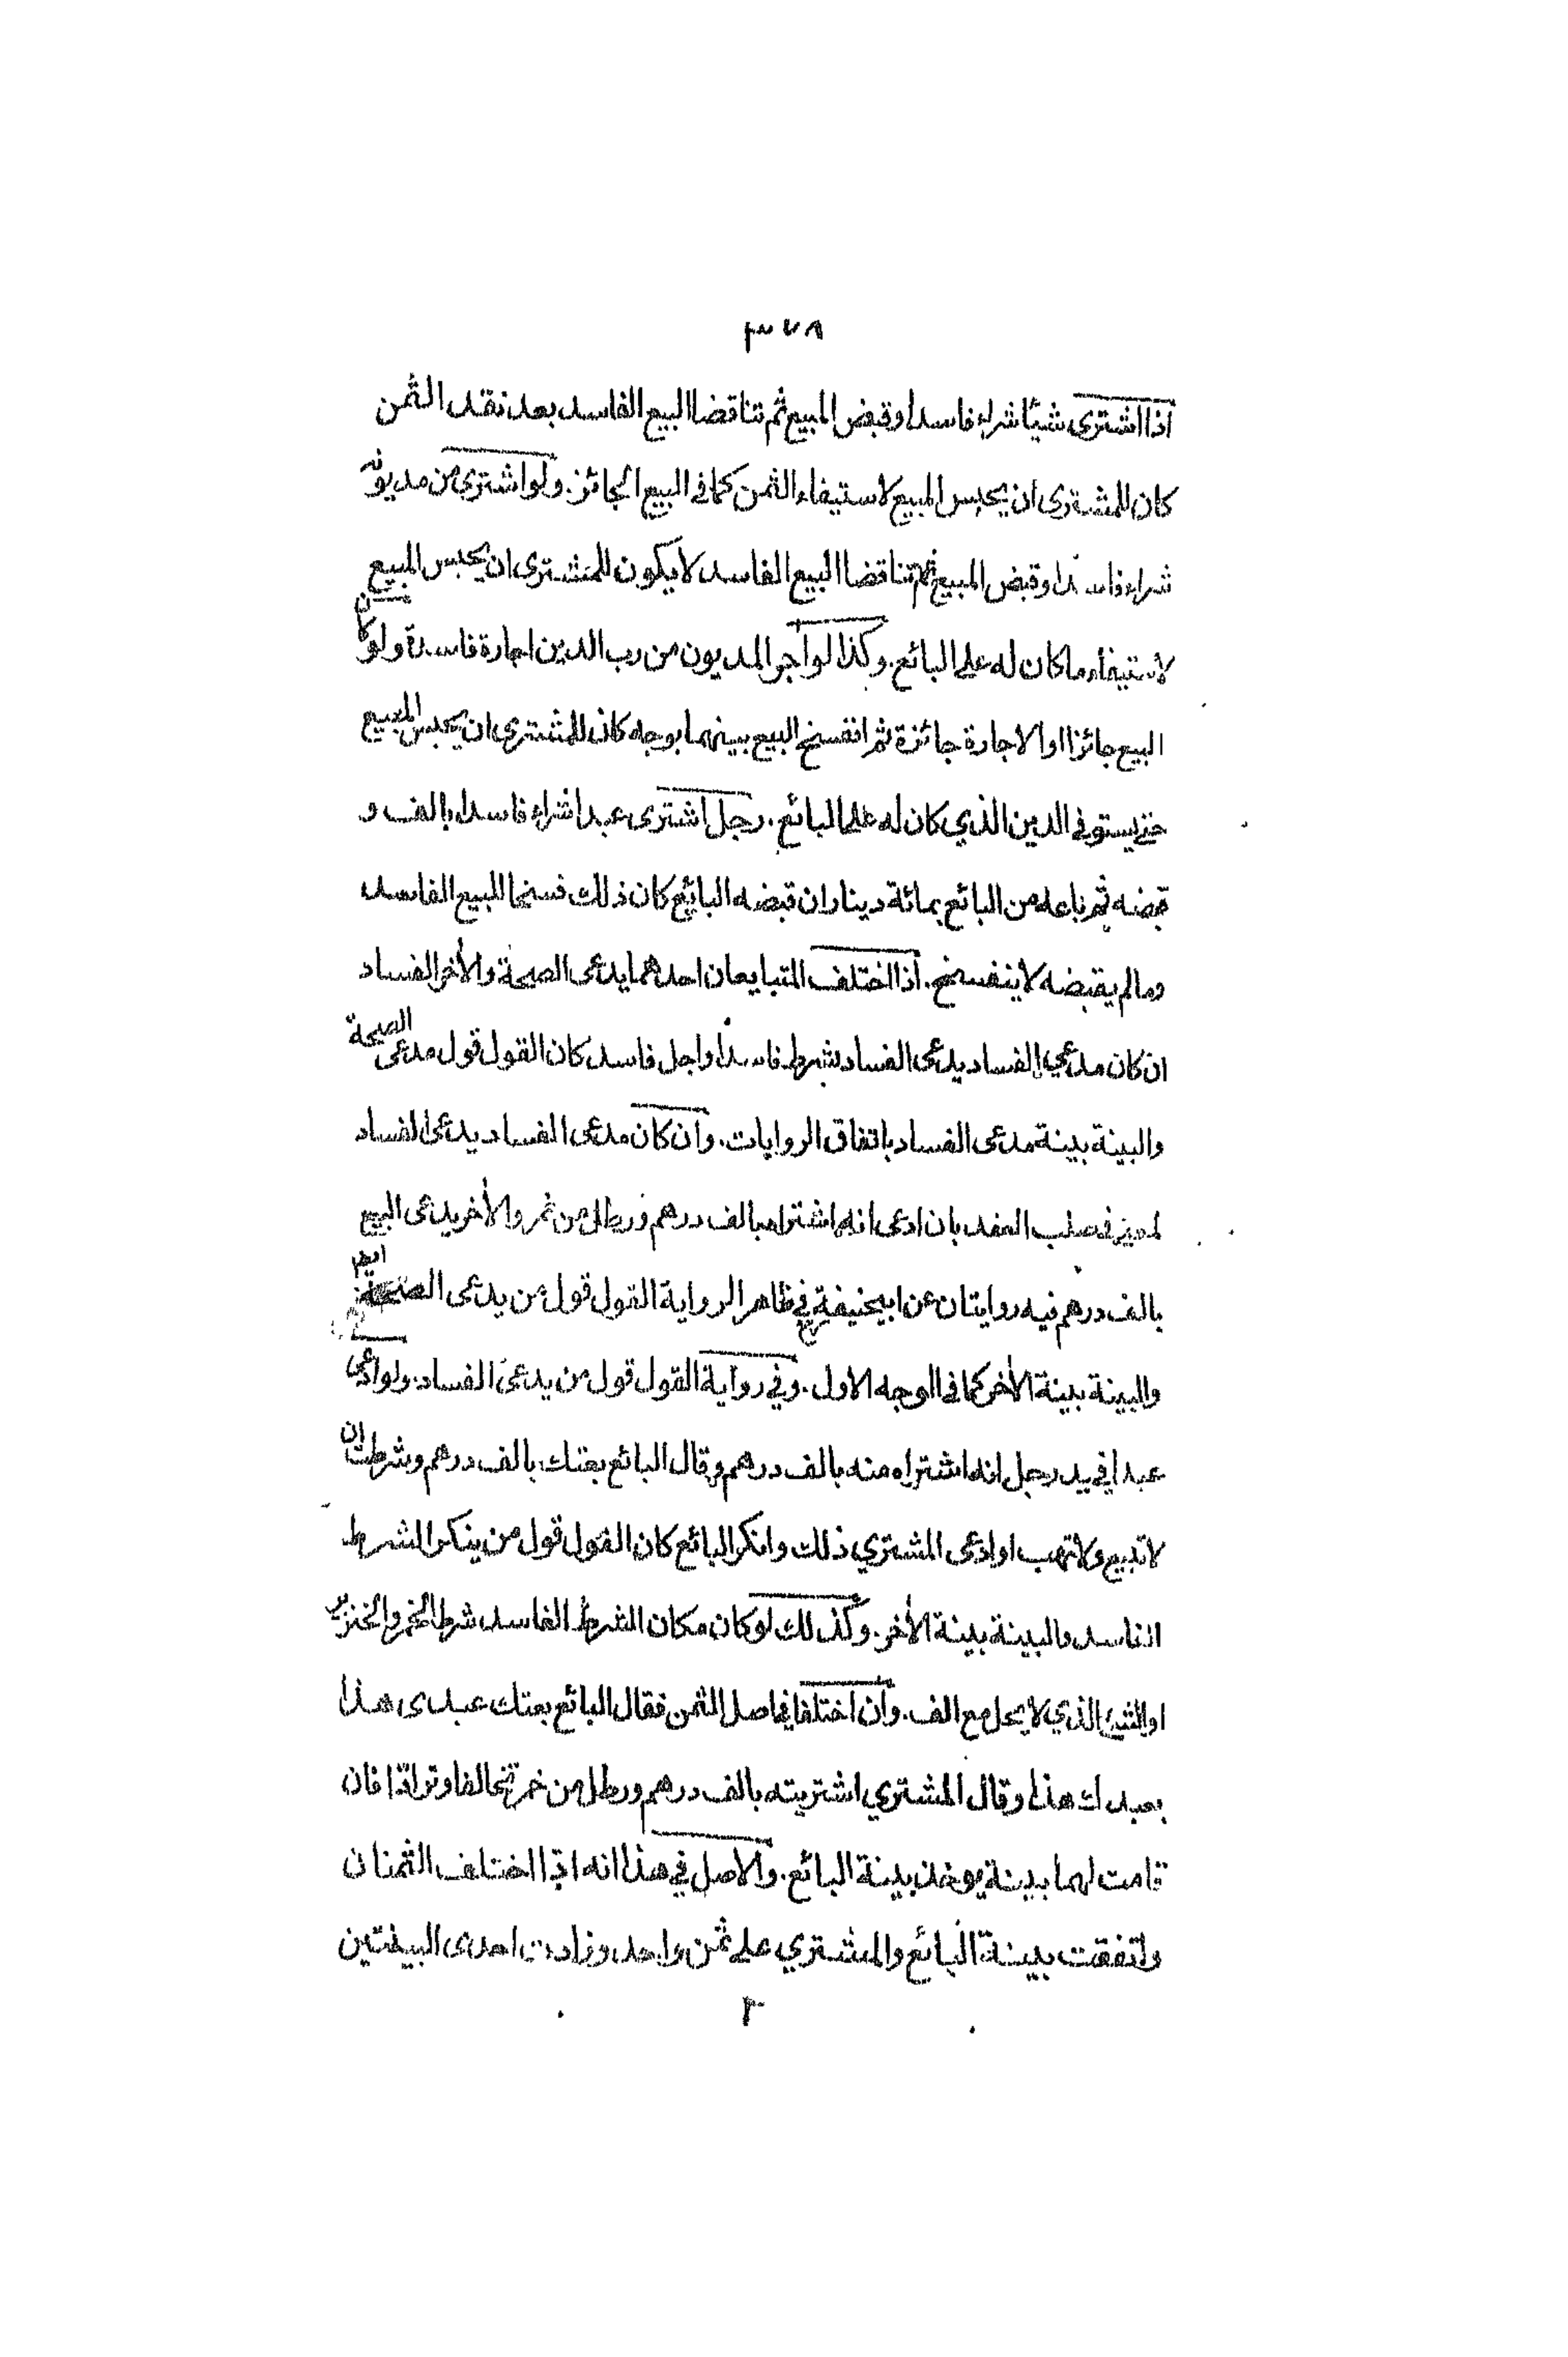 ٣٧٨
اذا اشترى شيئا شراء فاسدا وقبض المبيع ثم تناقضا البيع الفاسد بعد نقد الثمن
كان للمشترى ان يحبس المبيع لاستيفاء الثمن كما فى البيع الجائز. ولو اشترى من مديونه
شراء فاسدا وقبض المبيع ثم تناقضا البيع الفاسد لا يكون للمشترى ان يحبس المبيع
لاستيفاء ما كان له على البائع. وكذا لو آجر المديون من رب الدين اجارة فاسدة ولو كان
البيع جائزا او الاجارة جائزة ثم انفسخ البيع بينهما بوجه كان للمشترى ان يحبس المبيع
حتى يستوفى الدين الذي كان له على البائع. رجل اشترى عبدا شراء فاسدا بالف و
قبضه ثم باعه من البائع بمائة دينار ان قبضه البائع كان ذلك فسخا للبيع الفاسد
وما لم يقبضه لا ينفسخ. اذا اختلف المتبايعان احدهما يدعى الصحة والأخر الفساد
ان كان مدعي الفساد يدعى الفساد بشرط فاسد أو اجل فاسد كان القول قول مدعى الصحة
والبينة بينة مدعى الفساد باتفاق الروايات. وان كان مدعى الفساد يدعى الفساد
لمعنى فى صلب العقد بان ادعى انه اشتراه بالف درهم ورطل من خمر والأخر يدعى البيع
بالف درهم فيه روايتان عن ابيحنيفة رح في ظاهر الرواية القول قول من يدعى الصحة ايضا
والبينة بينة الأخر كما فى الوجه الاول. وفي رواية القول قول من يدعى الفساد. ولو ادعى
عبدا في يد رجل انه اشتراه منه بالف درهم وقال البائع بعتك بالف درهم وشرطت ان
لا تبيع ولا تهب او ادعى المشتري ذلك وانكر البائع كان القول قول من ينكر الشرط
الفاسد والبينة بينة الأخر. وكذلك لو كان مكان الشرط الفاسد شرط الخمر والخنزير
او الشئ الذي لا يحل مع الف. وان اختلفا في اصل الثمن فقال البائع بعتك عبدى هذا
بعبدك هذا وقال المشتري اشتريته بالف درهم ورطل من خمر تحالفا وترادا فان
قامت لهما بينة يوخذ ببينة البائع. والاصل في هذا انه اذا اختلف الثمنان
واتفقت بينة البائع والمشتري على ثمن واحد وزادت احدى البينتين